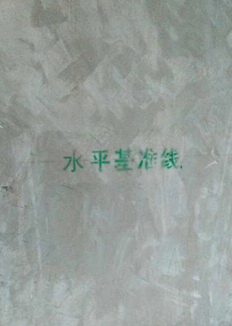 水平基准线